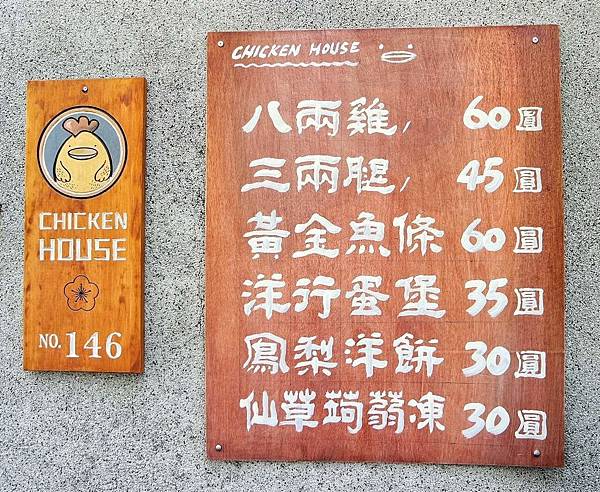 CHICKEN
HOUSE
NO. 146
CHICKEN HOUSE
八兩雞, 60圓
三兩腿, 45圓
黃金魚條 60圓
洋行蛋堡 35圓
鳳梨洋餅 30圓
仙草蒟蒻凍 30圓